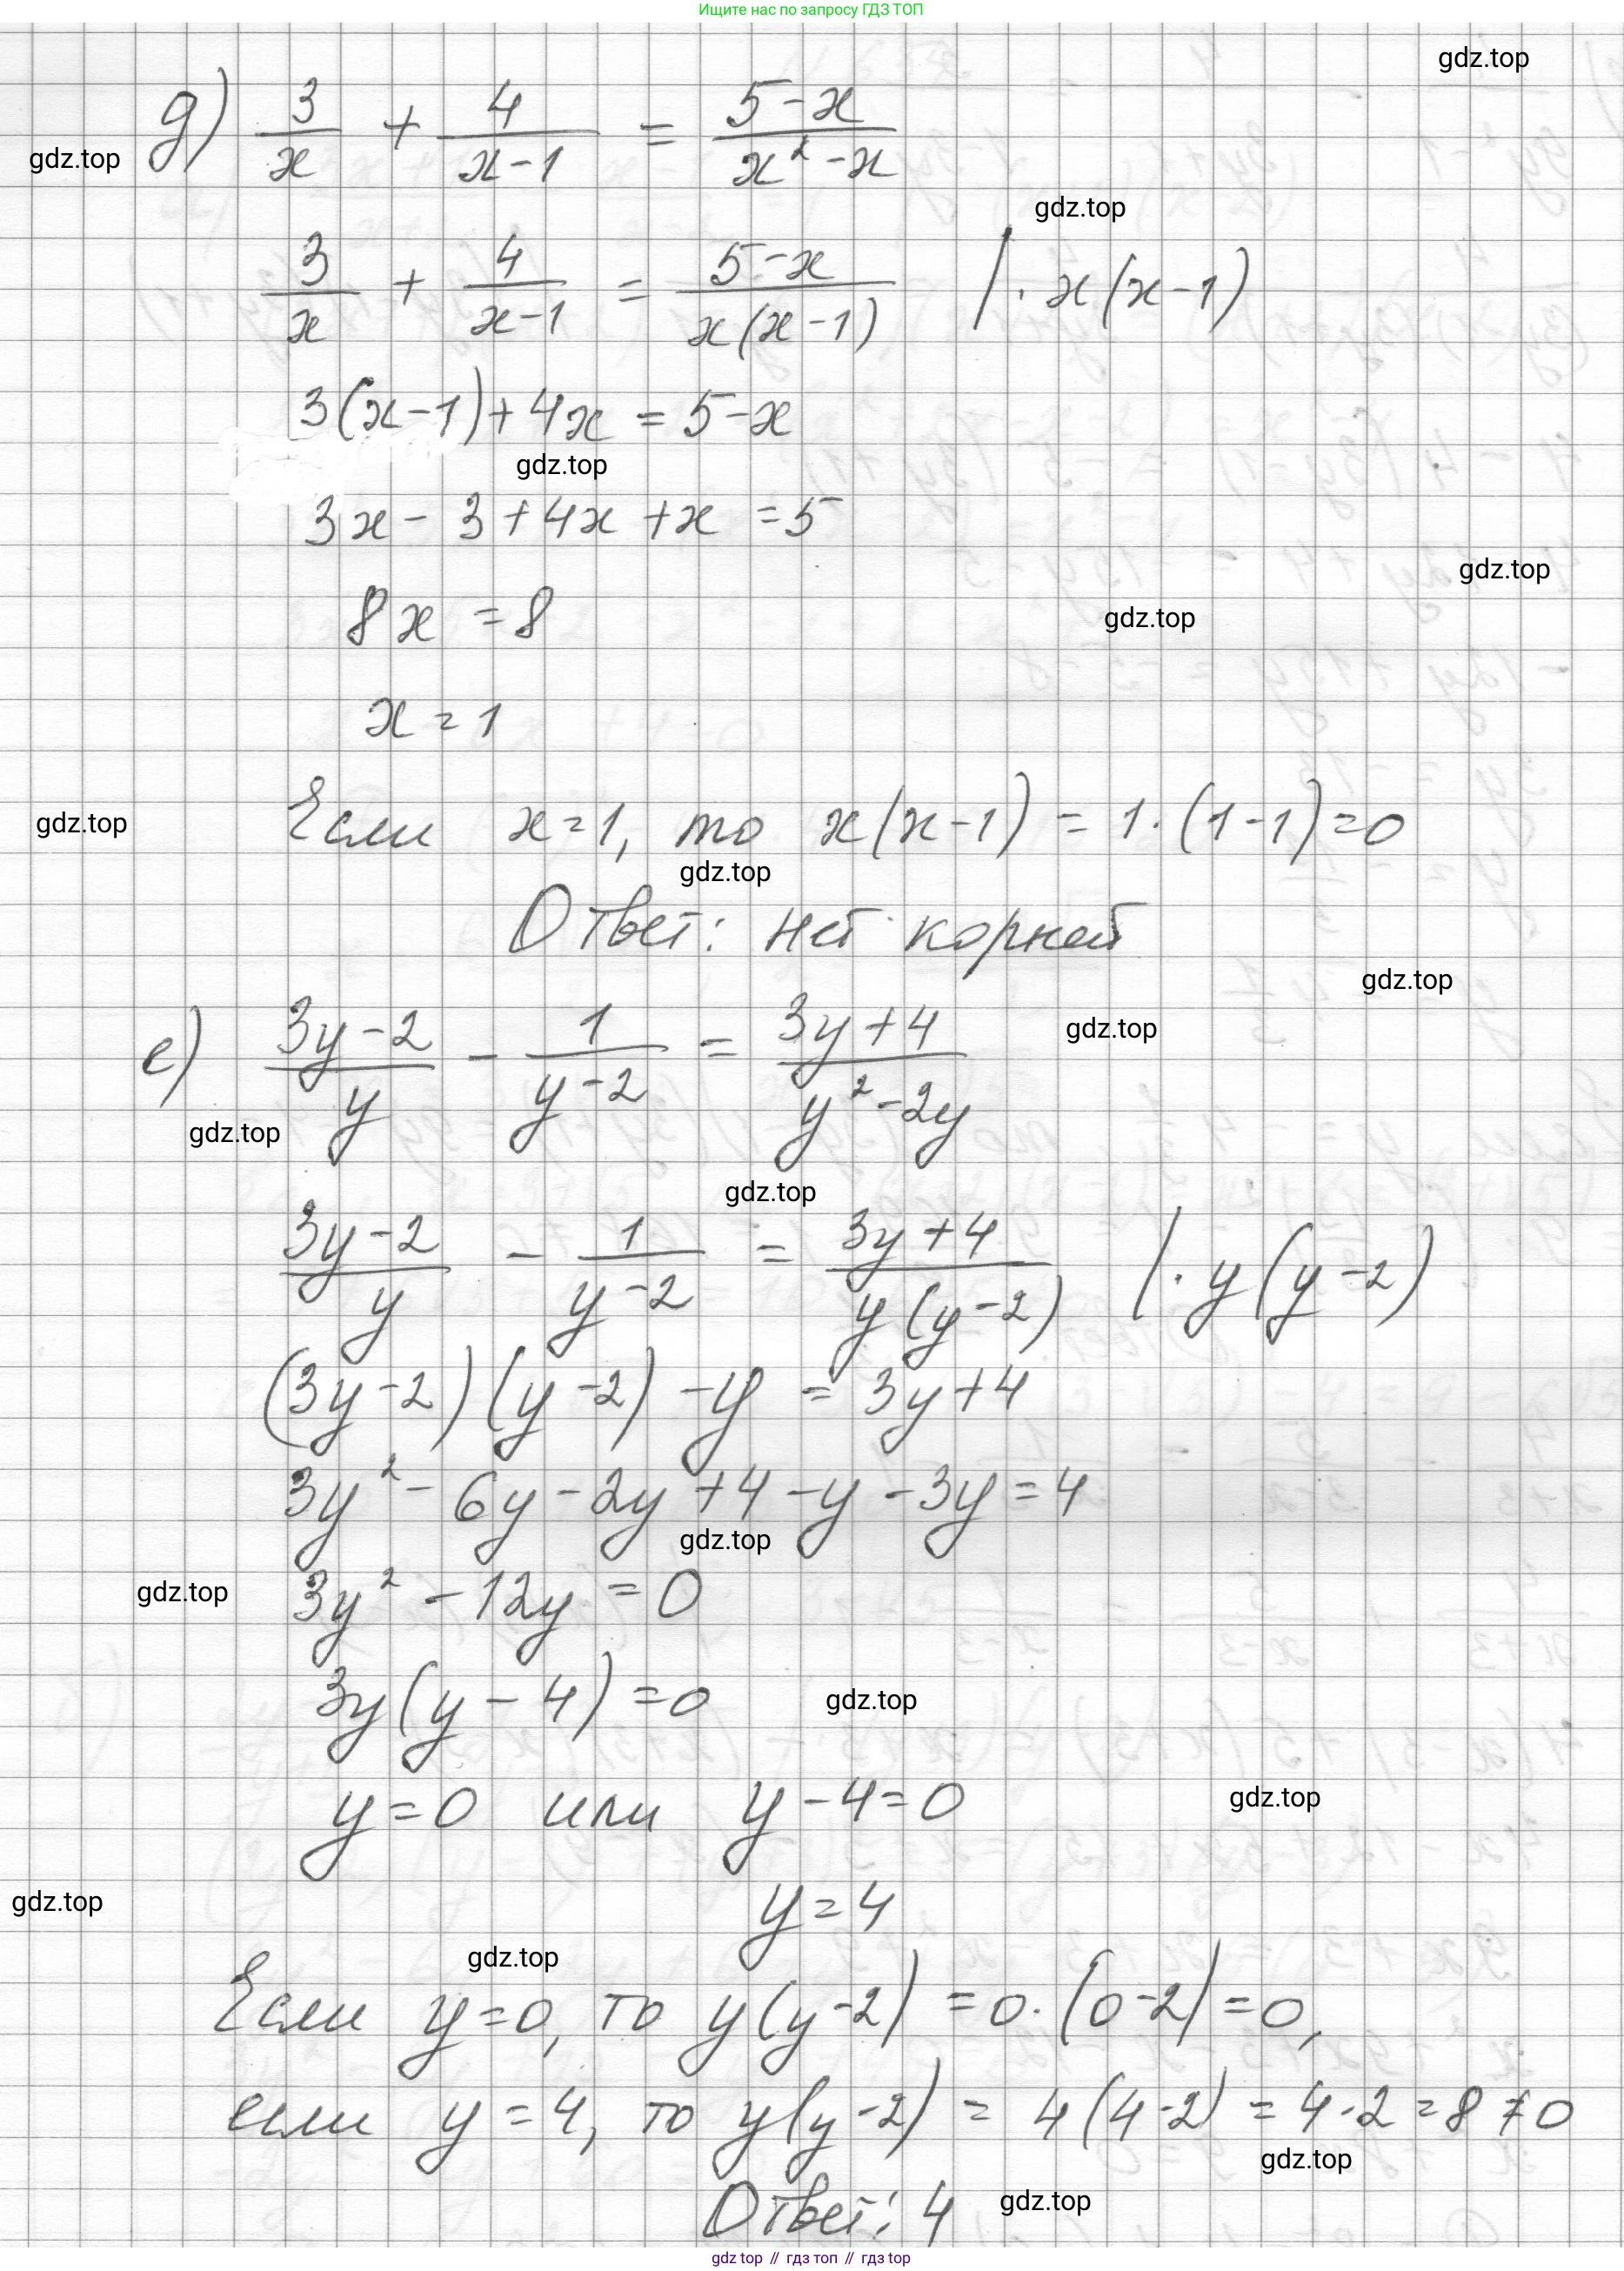 Ищите нас по запросу ГДЗ ТОП
gdz.top
д) 3/x + 4/(x-1) = (5-x)/(x²-x)
gdz.top
gdz.top
3/x + 4/(x-1) = (5-x)/(x(x-1)) | · x(x-1)
3(x-1)+4x = 5-x
gdz.top
3x - 3 + 4x + x = 5
gdz.top
8x = 8
gdz.top
x = 1
Если x=1, то x(x-1) = 1·(1-1)=0
gdz.top
gdz.top
Ответ: нет корней
gdz.top
е) (3y-2)/y - 1/(y-2) = (3y+4)/(y²-2y)
gdz.top
gdz.top
gdz.top
(3y-2)/y - 1/(y-2) = (3y+4)/(y(y-2)) | · y(y-2)
(3y-2)(y-2) - y = 3y+4
3y² - 6y - 2y + 4 - y - 3y = 4
gdz.top
gdz.top
3y² - 12y = 0
3y(y-4) = 0
gdz.top
y=0 или y-4=0
gdz.top
y=4
gdz.top
gdz.top
Если y=0, то y(y-2) = 0·(0-2)=0,
если y=4, то y(y-2) = 4(4-2) = 4·2=8≠0
gdz.top
Ответ: 4
gdz.top
gdz top // гдз топ // gdz top